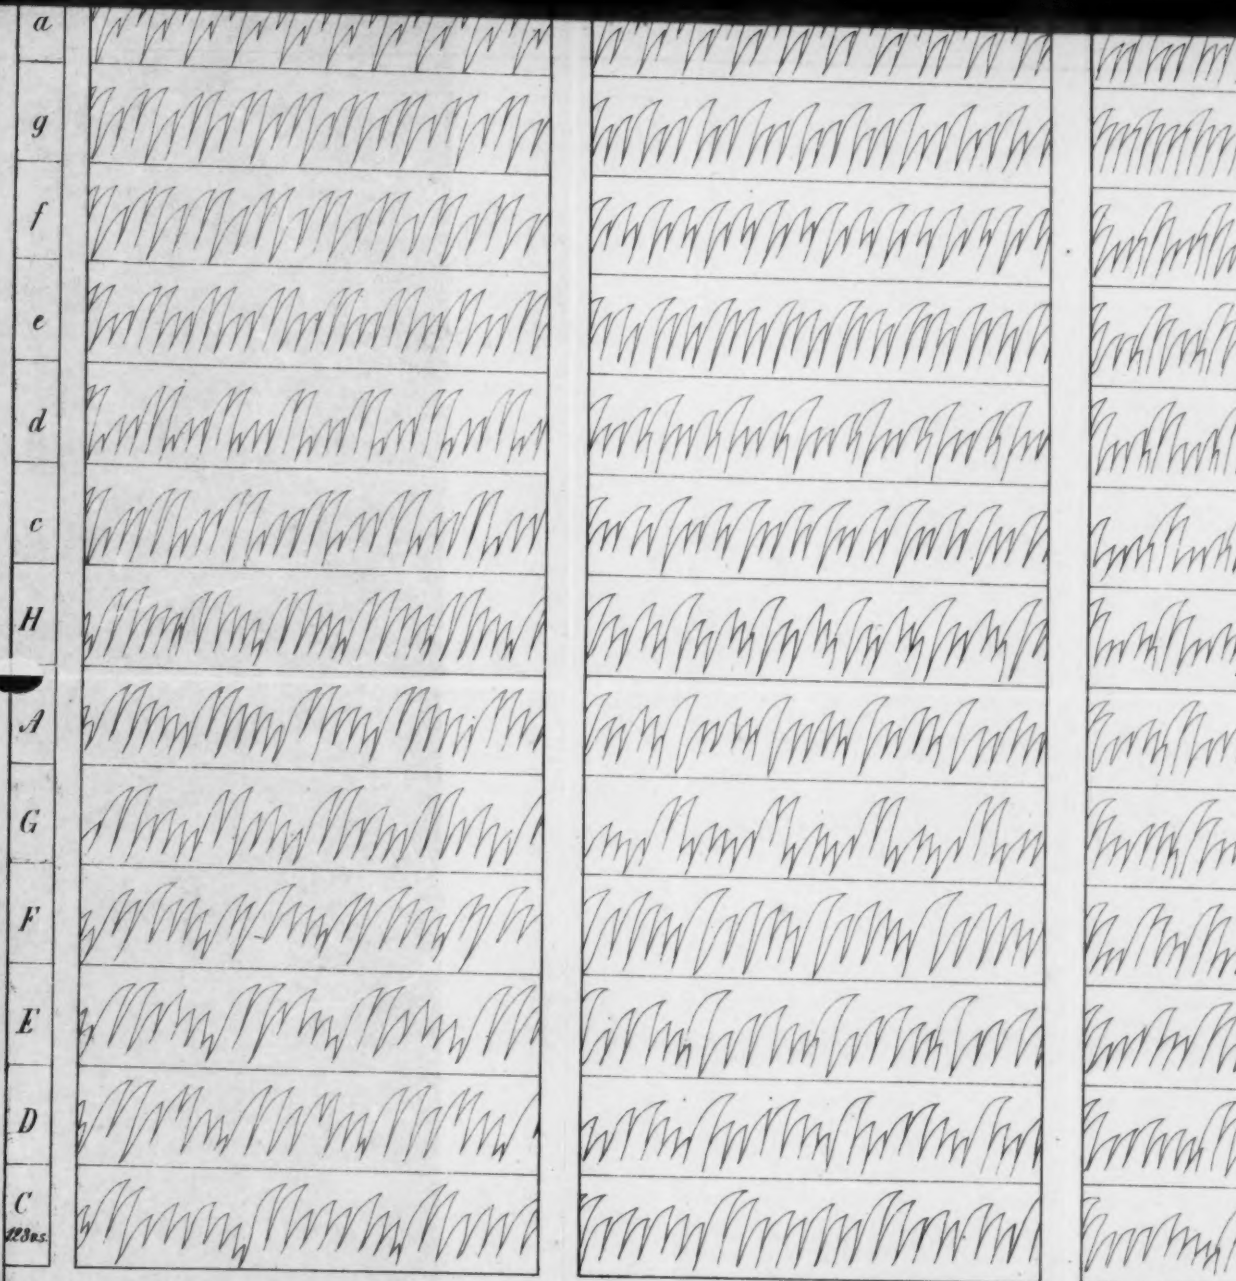 a
g
f
e
d
c
H
A
G
F
E
D
C
128 v.s.